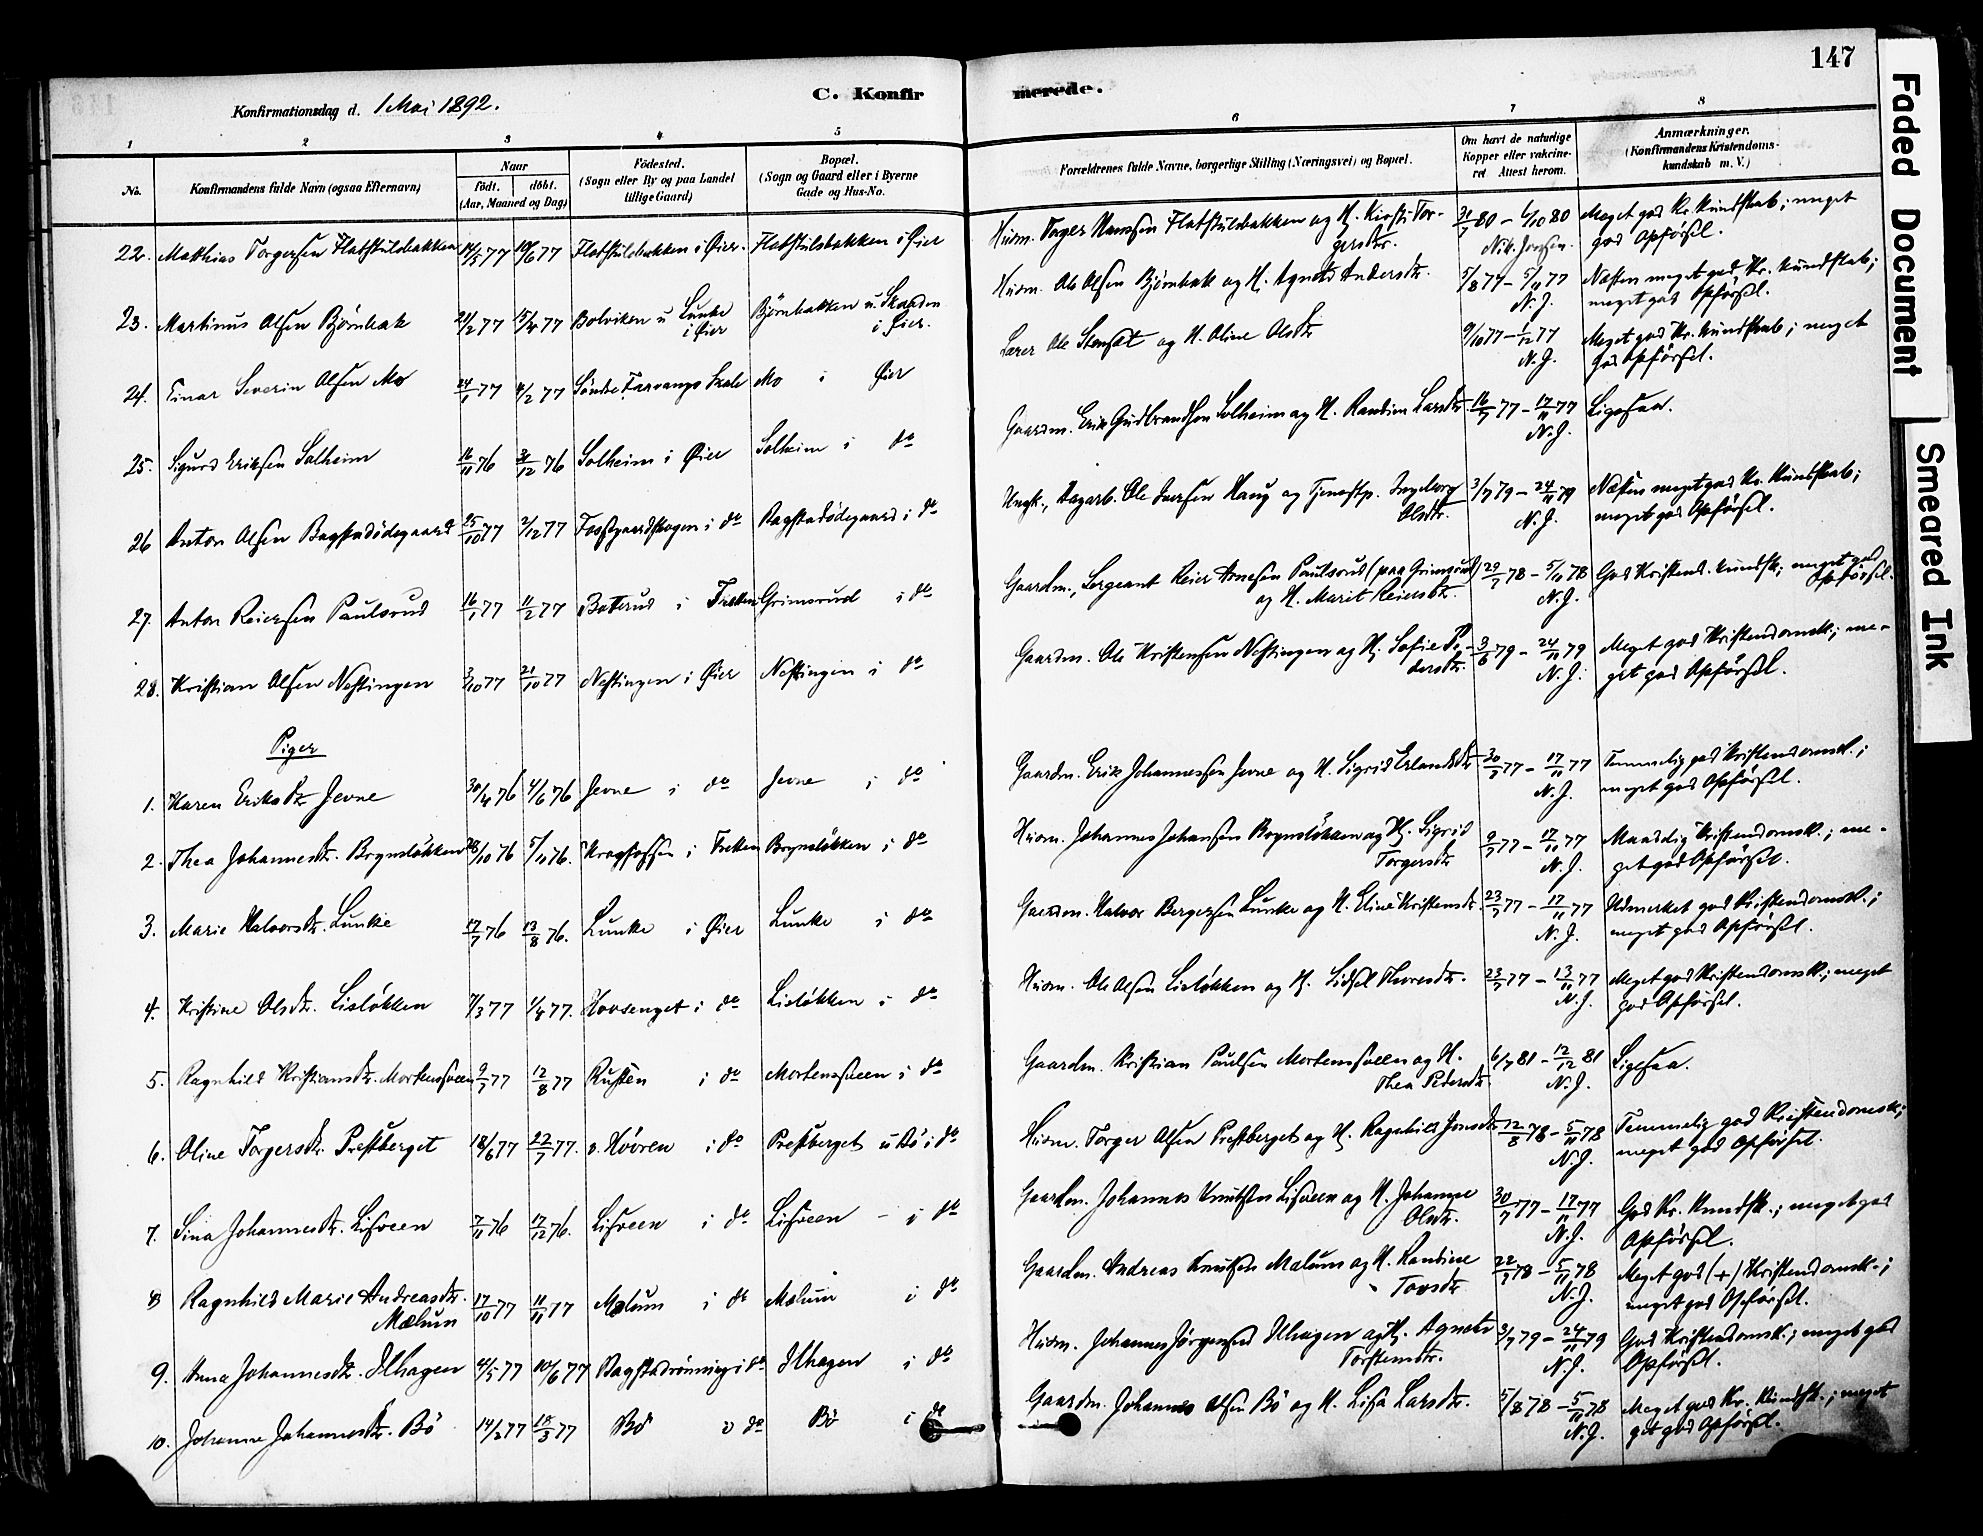 147
Konfirmationsdag d. 1 Mai 1892.
C. Konfirmerede.
1 2 3 4 5 6 7 8
No.
Konfirmandens fulde Navn (ogsaa Efternavn)
Naar
født. døbt.
(Aar, Maaned og Dag)
Fødested.
(Sogn eller By og paa Landet
tillige Gaard)
Bopæl.
(Sogn og Gaard eller i Byerne
Gade og Hus-No.
Forældrenes fulde Navne, borgerlige Stilling (Næringsvei) og Bopæl.
Om havt de naturlige
Kopper eller vakcine-
ret Attest herom.
Anmærkninger.
(Konfirmandens Kristendoms-
kundskab m. V.)
22. Matthias Torgersen Flatstulsbakken 14/5 77 10/6 77 Flatstulsbakken i Øier. Flatstulsbakken i Øier
Husm. Torger Hanssen Flatstulsbakken og H. Kirsti Tor-
gersdtr. 80 – 6/10 80 Meget god Kr. kundskab; meget
god Opførsel.
23. Martinus Olsen Bjørnbak 21/2 77 15/4 77 Bolviken u Lunke
i Øier Bjørnbakken u. Skarden
i Øier.
Husm. Ole Olsen Bjørnbak og H. Agnete Andersdtr. 5/8 77 – 5/11 77
N. J. Næsten meget god Kr. kundskab;
meget god Opførsel.
24. Einar Severin Olsen Mo 24/1 77 4/2 77 Søndre Farvangs Skole Mo i Øier
Lærer Ole Stensæt og H. Oline Olsdtr 9/10 77 – 1/12 77
N. J. Meget god Kr. kundskab; meget
god Opførsel.
25. Sigurd Eriksen Solheim 16/11 76 31/12 76 Solheim i Øier Solheim i do
Gaardm. Erik Gudbrandsen Solheim og H. Randine Larsdtr. 16/7 77 – 17/11 77
N. J. Ligesaa.
26 Anton Olsen Bagstadødegaard 25/10 77 2/12 77 Fossegaardskogen i do Bagstadødegaard i do
Ungk., Dagarb. Ole Iversen Haug og Tjenestp. Ingeborg
Olsdtr. 3/7 79 – 24/11 79
N. J. Næsten meget god Kr. Kundskab;
meget god Opførsel.
27. Anton Reiersen Paulsrud 16/1 77 11/2 77 Boterud i Fretten Grimsrud i do
Gaardm., Sergeant Reier Arnesen Paulsrud (paa Grimsrud)
og H. Marit Reiersdtr. 29/7 78 – 5/11 78
N. J. God Kristend. kundsk; meget god
Opførsel.
28. Kristian Olsen Nestingen 2/10 77 21/10 77 Nestingen i Øier Nestingen i do
Gaardm. Ole Kristensen Nestingen og H. Sofie Pe-
dersdtr. 3/6 79 – 24/11 79
N. J. Meget god Kristendomsk; me-
get god Opførsel.
Piger
1. Karen Eriksdtr Jevne 30/4 76 4/6 76 Jevne i do Jevne i do
Gaardm. Erik Johannessen Jevne og H. Sigrid Erlandsdtr 30/7 77 – 17/11 77
N. J. Temmelig god Kristendomsk.;
meget god Opførsel.
2. Thea Johannesdtr. Brynsløkken 10 76 5/11 76. Kragfossen i Fretten Brynsløkken i do
Husm. Johannes Johansen Brynsløkken og H. Sigrid
Torgersdtr 9/7 77 – 17/11 77
N. J. Maadelig Kristendomsk.; me-
get god Opførsel.
3. Marie Halvorsdtr. Lunke 17/7 76 13/8 76. Lunke i Øier Lunke i do
Gaardm. Halvor Bergersen Lunke og H. Eline Kristensdtr. 23/7 77 – 17/11 77
N. J. Udmerket god Kristendomsk.;
meget god Opførsel.
4. Kristine Olsdtr. Lisløkken 7/3 77 1/4 77. Hovsenget i do Lisløkken i do
Husm. Ole Olsen Lisløkken og H. Sidsel Thoresdtr. 23/7 77 – 13/11 77
N. J. Meget god Kristendomsk.; meget
god Opførsel.
5. Ragnhild Kristiansdtr. Mortensveen 9/7 77 12/8 77 Rusten i do Mortensveen i do
Gaardm. Kristian Paulsen Mortensveen og H.
Thea Pedersdtr. 6/7 81 – 12/12 81
N. J. Ligesaa.
6. Oline Torgersdtr. Prestberget 18/6 77 22/7 77. v. Høvren i do Prestberget u Bø i do
Husm. Torger Olsen Prestberget og H. Ragnhild Jonsdtr 12/8 78 – 5/11 78
N. J. Temmelig god Kristendomsk;
meget god Opførsel.
7. Sina Johannesdtr. Lisveen 7/11 76 17/12 76. Lisveen i do Lisveen – i do
Gaardm. Johannes Knutsen Lisveen og H. Johanne
Olsdtr. 30/7 77 – 17/11 77
N. J. God Kr. Kundsk.; meget god
Opførsel.
8 Ragnhild Marie Andreasdtr.
Mælum 17/10 77 11/11 77 Mælum i do Mælum i do
Gaardm. Andreas Knutsen Mælum og H. Randine
Tovsdtr 22/7 78 – 5/11 78
N. J. Meget god (+) Kristendomsk.;
meget god Opførsel.
9. Anna Johannesdtr. Ilhagen 4/5 77 10/6 77 Bagstadrønning i do Ilhagen i do
Husm. Johannes Jørgensen Ilhagen og H. Agnete
Torstensdtr. 3/7 79 – 24/11 79
N. J. God Kristendomsk; meget god
Opførsel.
10. Johanne Johannesdtr. Bø 14/2 77 18/3 77 Bø i do Bø i do
Gaardm. Johannes Olsen Bø og H. Lisa Larsdtr. 5/8 78 – 5/11 78
N. J. Meget god Kr. Kundsk.; meget
god Opførsel.
Faded Document
Smeared Ink